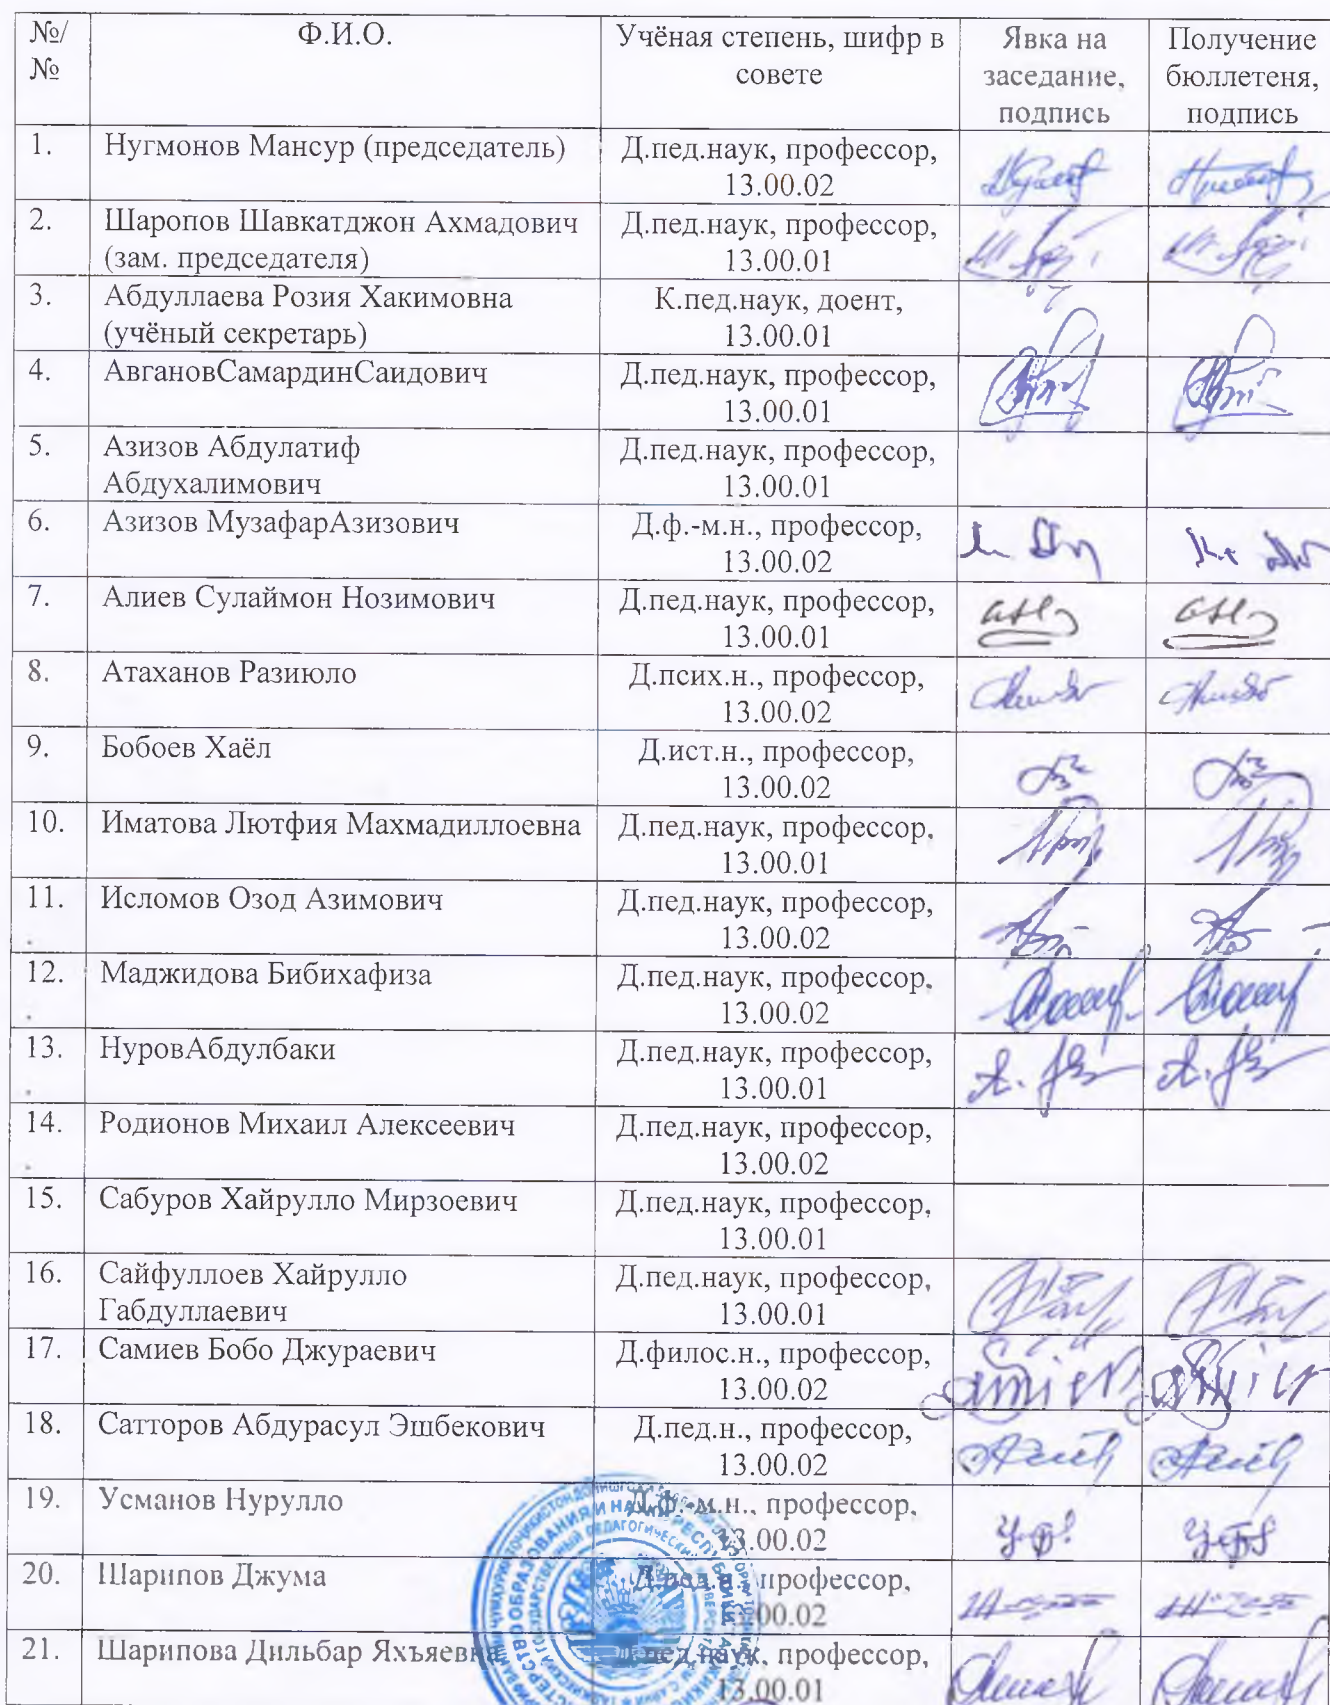 №/
№
Ф.И.О.
Учёная степень, шифр в
совете
Явка на
заседание,
подпись
Получение
бюллетеня,
подпись
1.
Нугмонов Мансур (председатель)
Д.пед.наук, профессор,
13.00.02
2.
Шаропов Шавкатджон Ахмадович
(зам. председателя)
Д.пед.наук, профессор,
13.00.01
3.
Абдуллаева Розия Хакимовна
(учёный секретарь)
К.пед.наук, доент,
13.00.01
4.
АвгановСамардинСаидович
Д.пед.наук, профессор,
13.00.01
5.
Азизов Абдулатиф
Абдухалимович
Д.пед.наук, профессор,
13.00.01
6.
Азизов МузафарАзизович
Д.ф.-м.н., профессор,
13.00.02
7.
Алиев Сулаймон Нозимович
Д.пед.наук, профессор,
13.00.01
8.
Атаханов Разиюло
Д.псих.н., профессор,
13.00.02
9.
Бобоев Хаёл
Д.ист.н., профессор,
13.00.02
10.
Иматова Лютфия Махмадиллоевна
Д.пед.наук, профессор,
13.00.01
11.
Исломов Озод Азимович
Д.пед.наук, профессор,
13.00.02
12.
Маджидова Бибихафиза
Д.пед.наук, профессор,
13.00.02
13.
НуровАбдулбаки
Д.пед.наук, профессор,
13.00.01
14.
Родионов Михаил Алексеевич
Д.пед.наук, профессор,
13.00.02
15.
Сабуров Хайрулло Мирзоевич
Д.пед.наук, профессор,
13.00.01
16.
Сайфуллоев Хайрулло
Габдуллаевич
Д.пед.наук, профессор,
13.00.01
17.
Самиев Бобо Джураевич
Д.филос.н., профессор,
13.00.02
18.
Сатторов Абдурасул Эшбекович
Д.пед.н., профессор,
13.00.02
19.
Усманов Нурулло
Д.ф.-м.н., профессор,
13.00.02
20.
Шарипов Джума
Д.пед.н., профессор,
13.00.02
21.
Шарипова Дильбар Яхъяевна
Д.пед.наук, профессор,
13.00.01